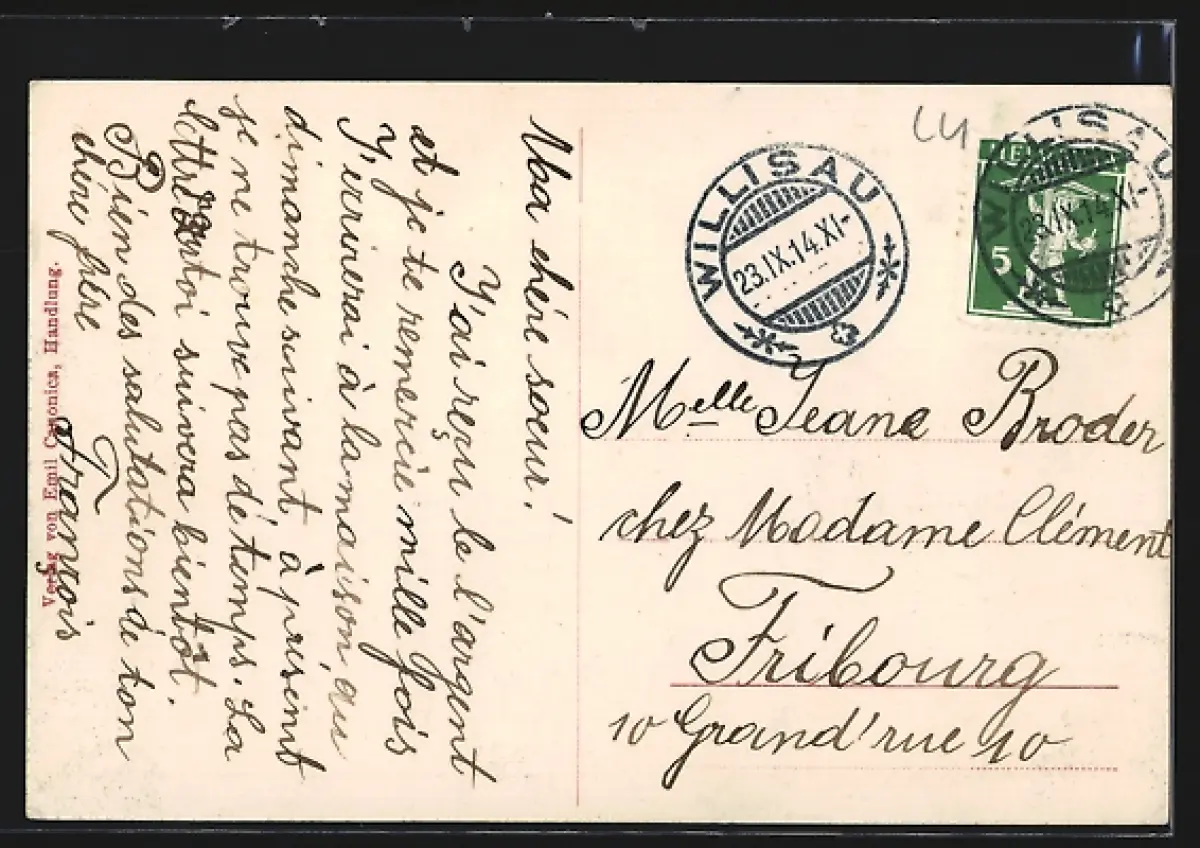 Maa chére soeur!
Y'ai reçu le l'argent
et je te remercie mille fois
Y'errinerai à la maison au
dimanche suivant à prisent
je ne trouve pas dé témps. La
lettre toi suivera bientôt.
Bien des salutations de ton
chére frére
François
Verlag von Emil Canonica, Handlung.
LU
WILLISAU
23.IX.14.XI-
WILLISAU
23.IX.14.XI-
HEL
5
Melle Jeane Broder
chez Madame Clément
Fribourg
10 Grand'rue 10